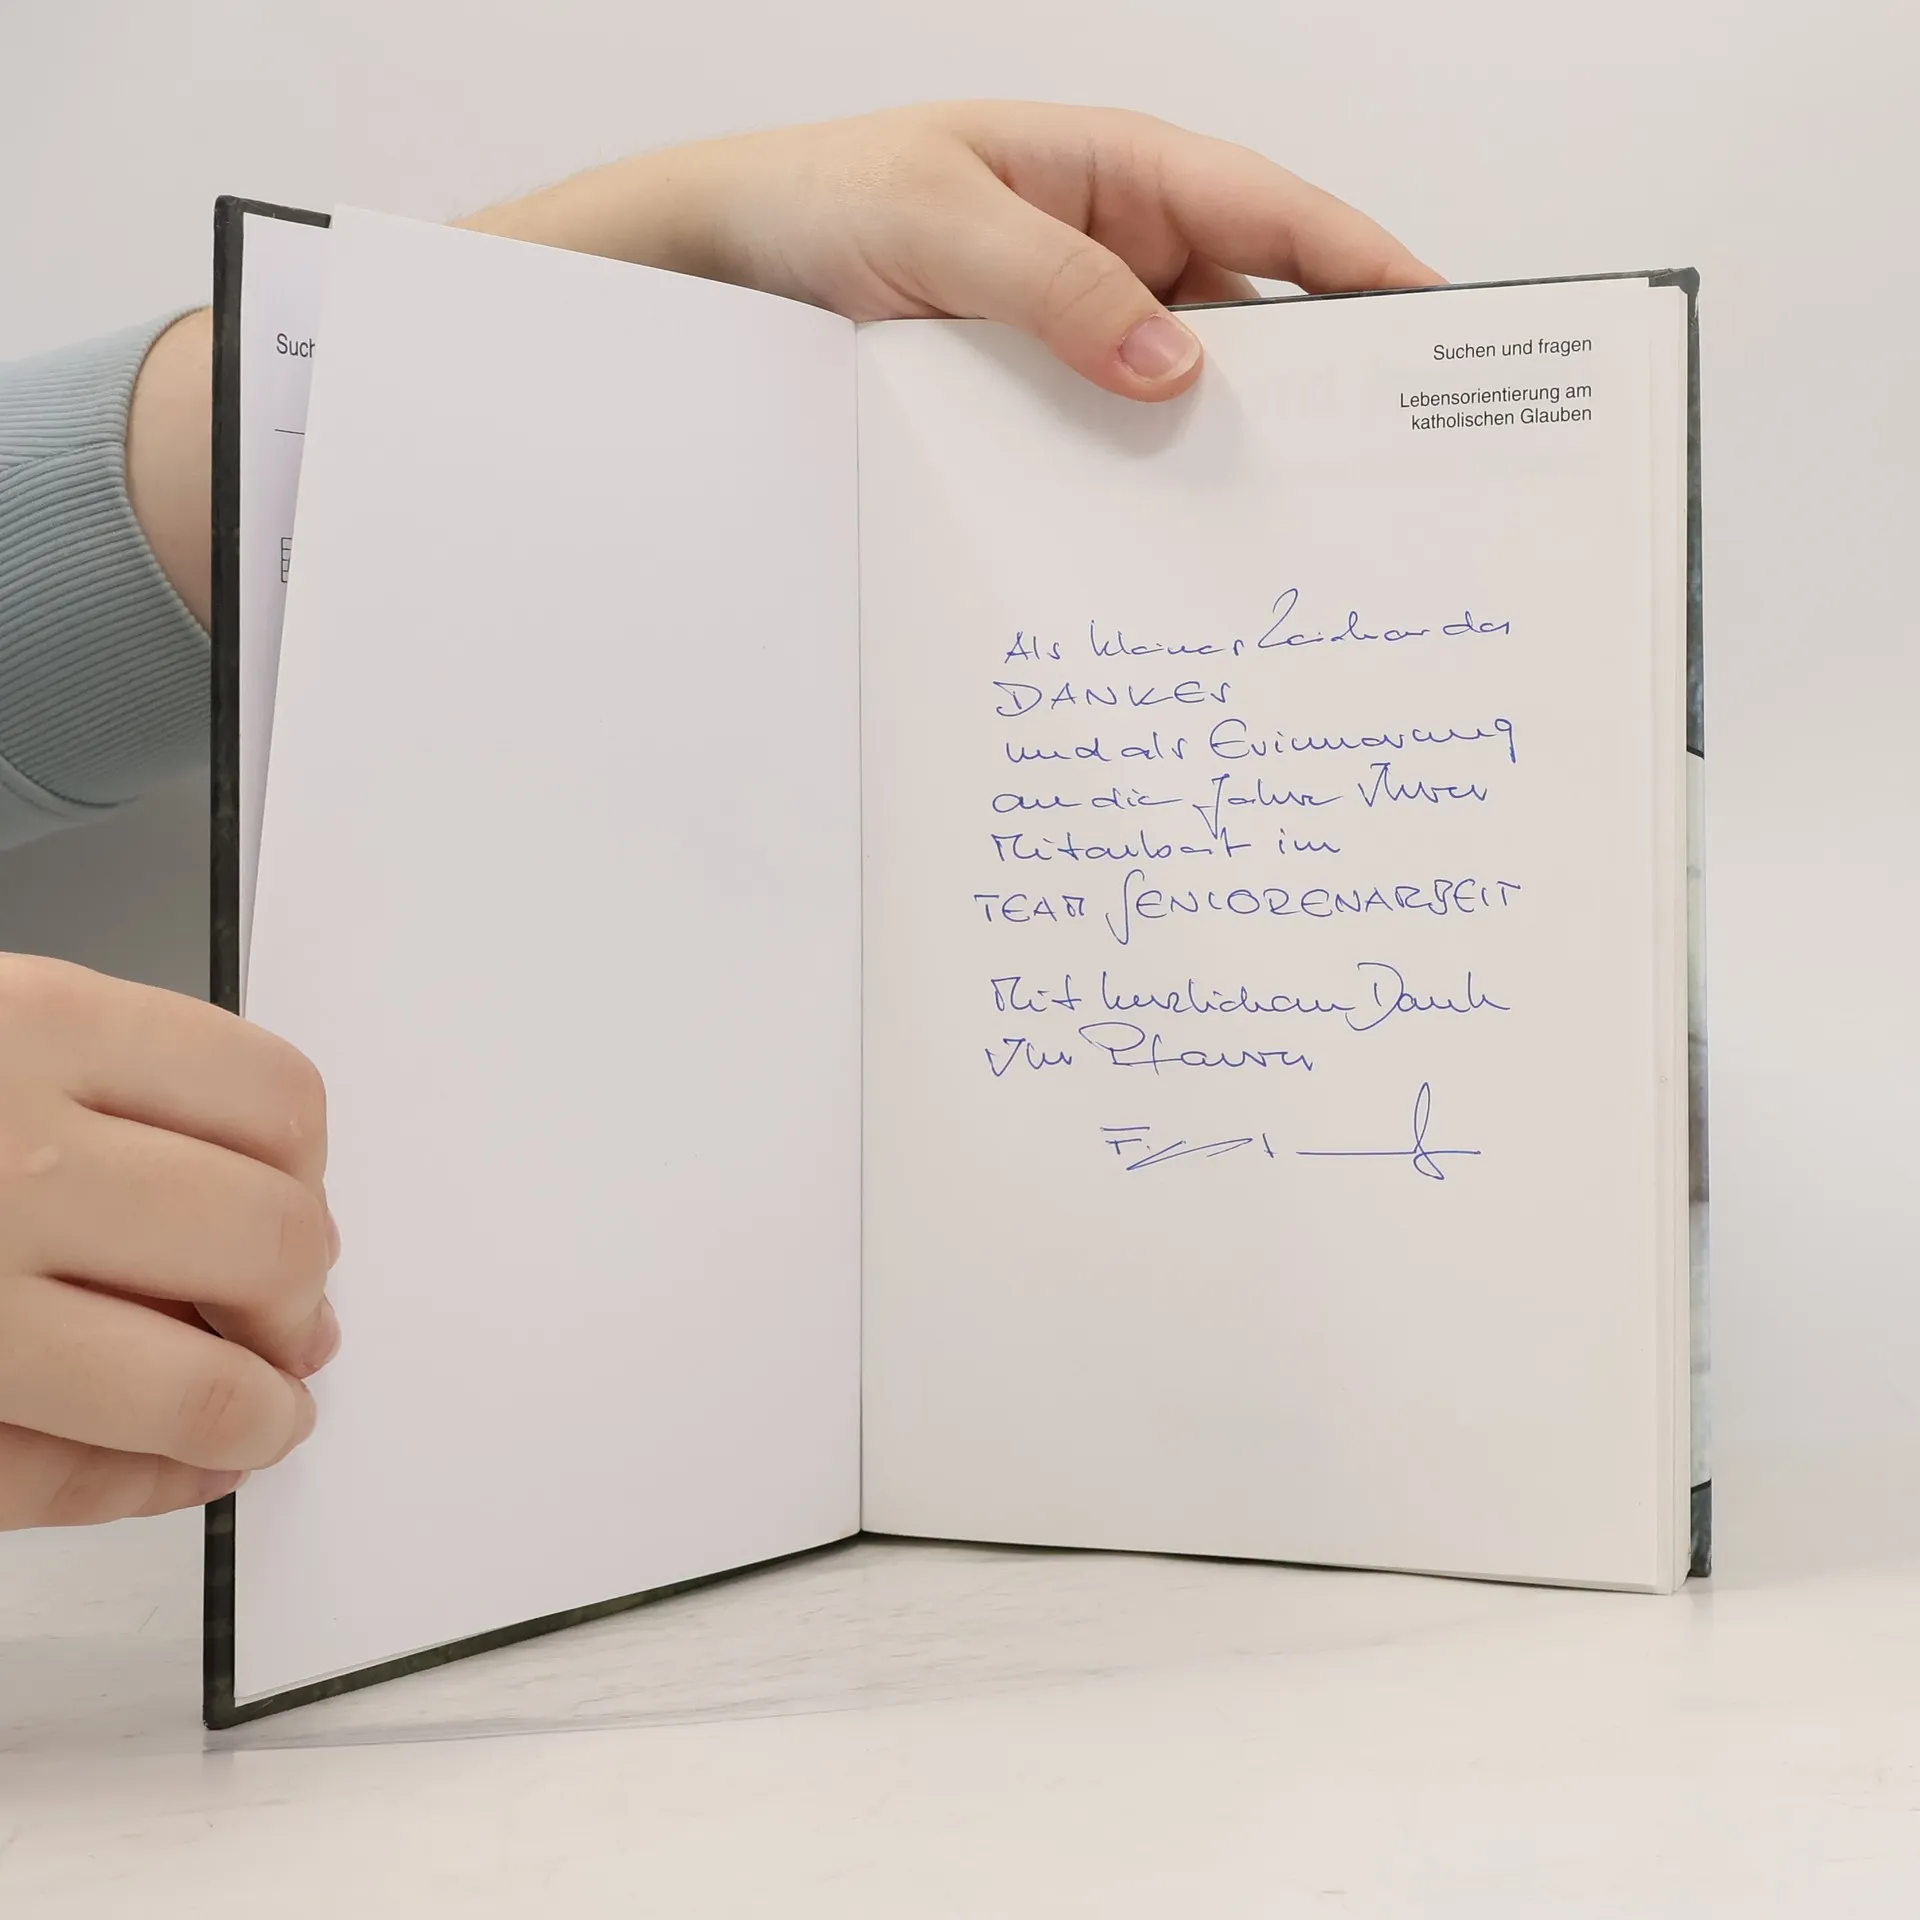 Such
Suchen und fragen
Lebensorientierung am
katholischen Glauben
Als kleines Zeichen des
DANKES
und als Erinnerung
an die Jahre Ihrer
Mitarbeit im
TEAM SENIORENARBEIT
Mit herzlichem Dank
Ihr Pfarrer